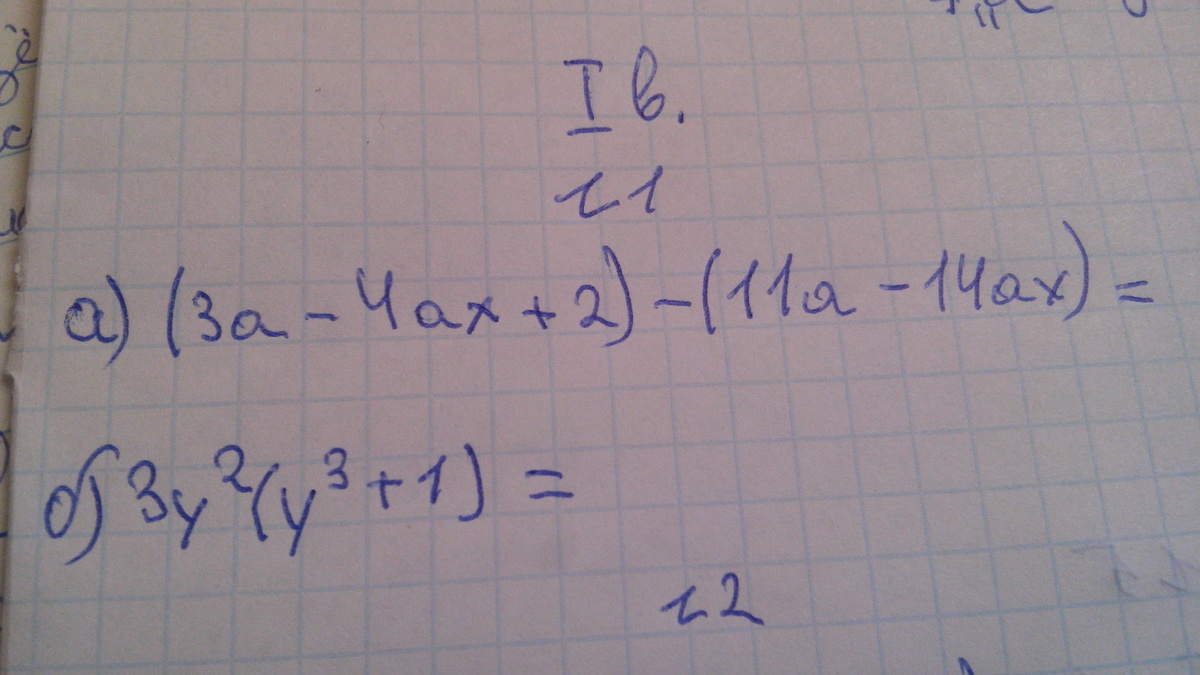 I в.
№1
а) (3a - 4ax + 2) - (11a - 14ax) =
б) 3y²(y³ + 1) =
№2